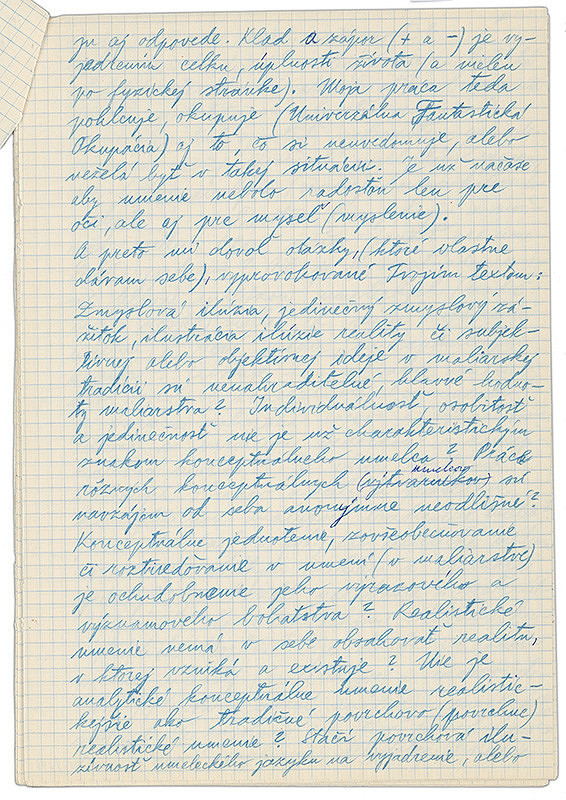 ju aj odpovede. Klad a zápor (+ a -) je vy-
jadrením celku, úplnosti života (a nielen
po fyzickej stránke). Moja práca teda
pohlcuje, okupuje (Univerzálna Fantastická
Okupácia) aj to, čo si neuvedomuje, alebo
neželá byť v takej situácii. Je už načase
aby umenie nebolo radosťou len pre
oči, ale aj pre myseľ (myslenie).
A preto mi dovoľ otázky, (ktoré vlastne
dávam sebe), vyprovokované Tvojím textom:
Zmyslová ilúzia, jedinečný zmyslový zá-
žitok, ilustrácia ilúzie reality či subjek-
tívnej alebo objektívnej ideje v maliarskej
tradícii sú nenahraditeľné, hlavné hodno-
ty maliarstva? Individuálnosť, osobitosť
a jedinečnosť nie je už charakteristickým
znakom konceptuálneho umelca? Práce
rôznych konceptuálnych (výtvarníkov) umelcov sú
navzájom od seba anonymne neodlišné?
Konceptuálne jednotenie, zovšeobecňovanie
či roztrieďovanie v umení (v maliarstve)
je ochudobnenie jeho výrazového a
významového bohatstva? Realistické
umenie nemá v sebe obsahovať realitu,
v ktorej vzniká a existuje? Nie je
analytické konceptuálne umenie realistic-
kejšie ako tradičné povrchovo (povrchne)
realistické umenie? Stačí povrchová ilu-
zívnosť umeleckého jazyku na vyjadrenie, alebo